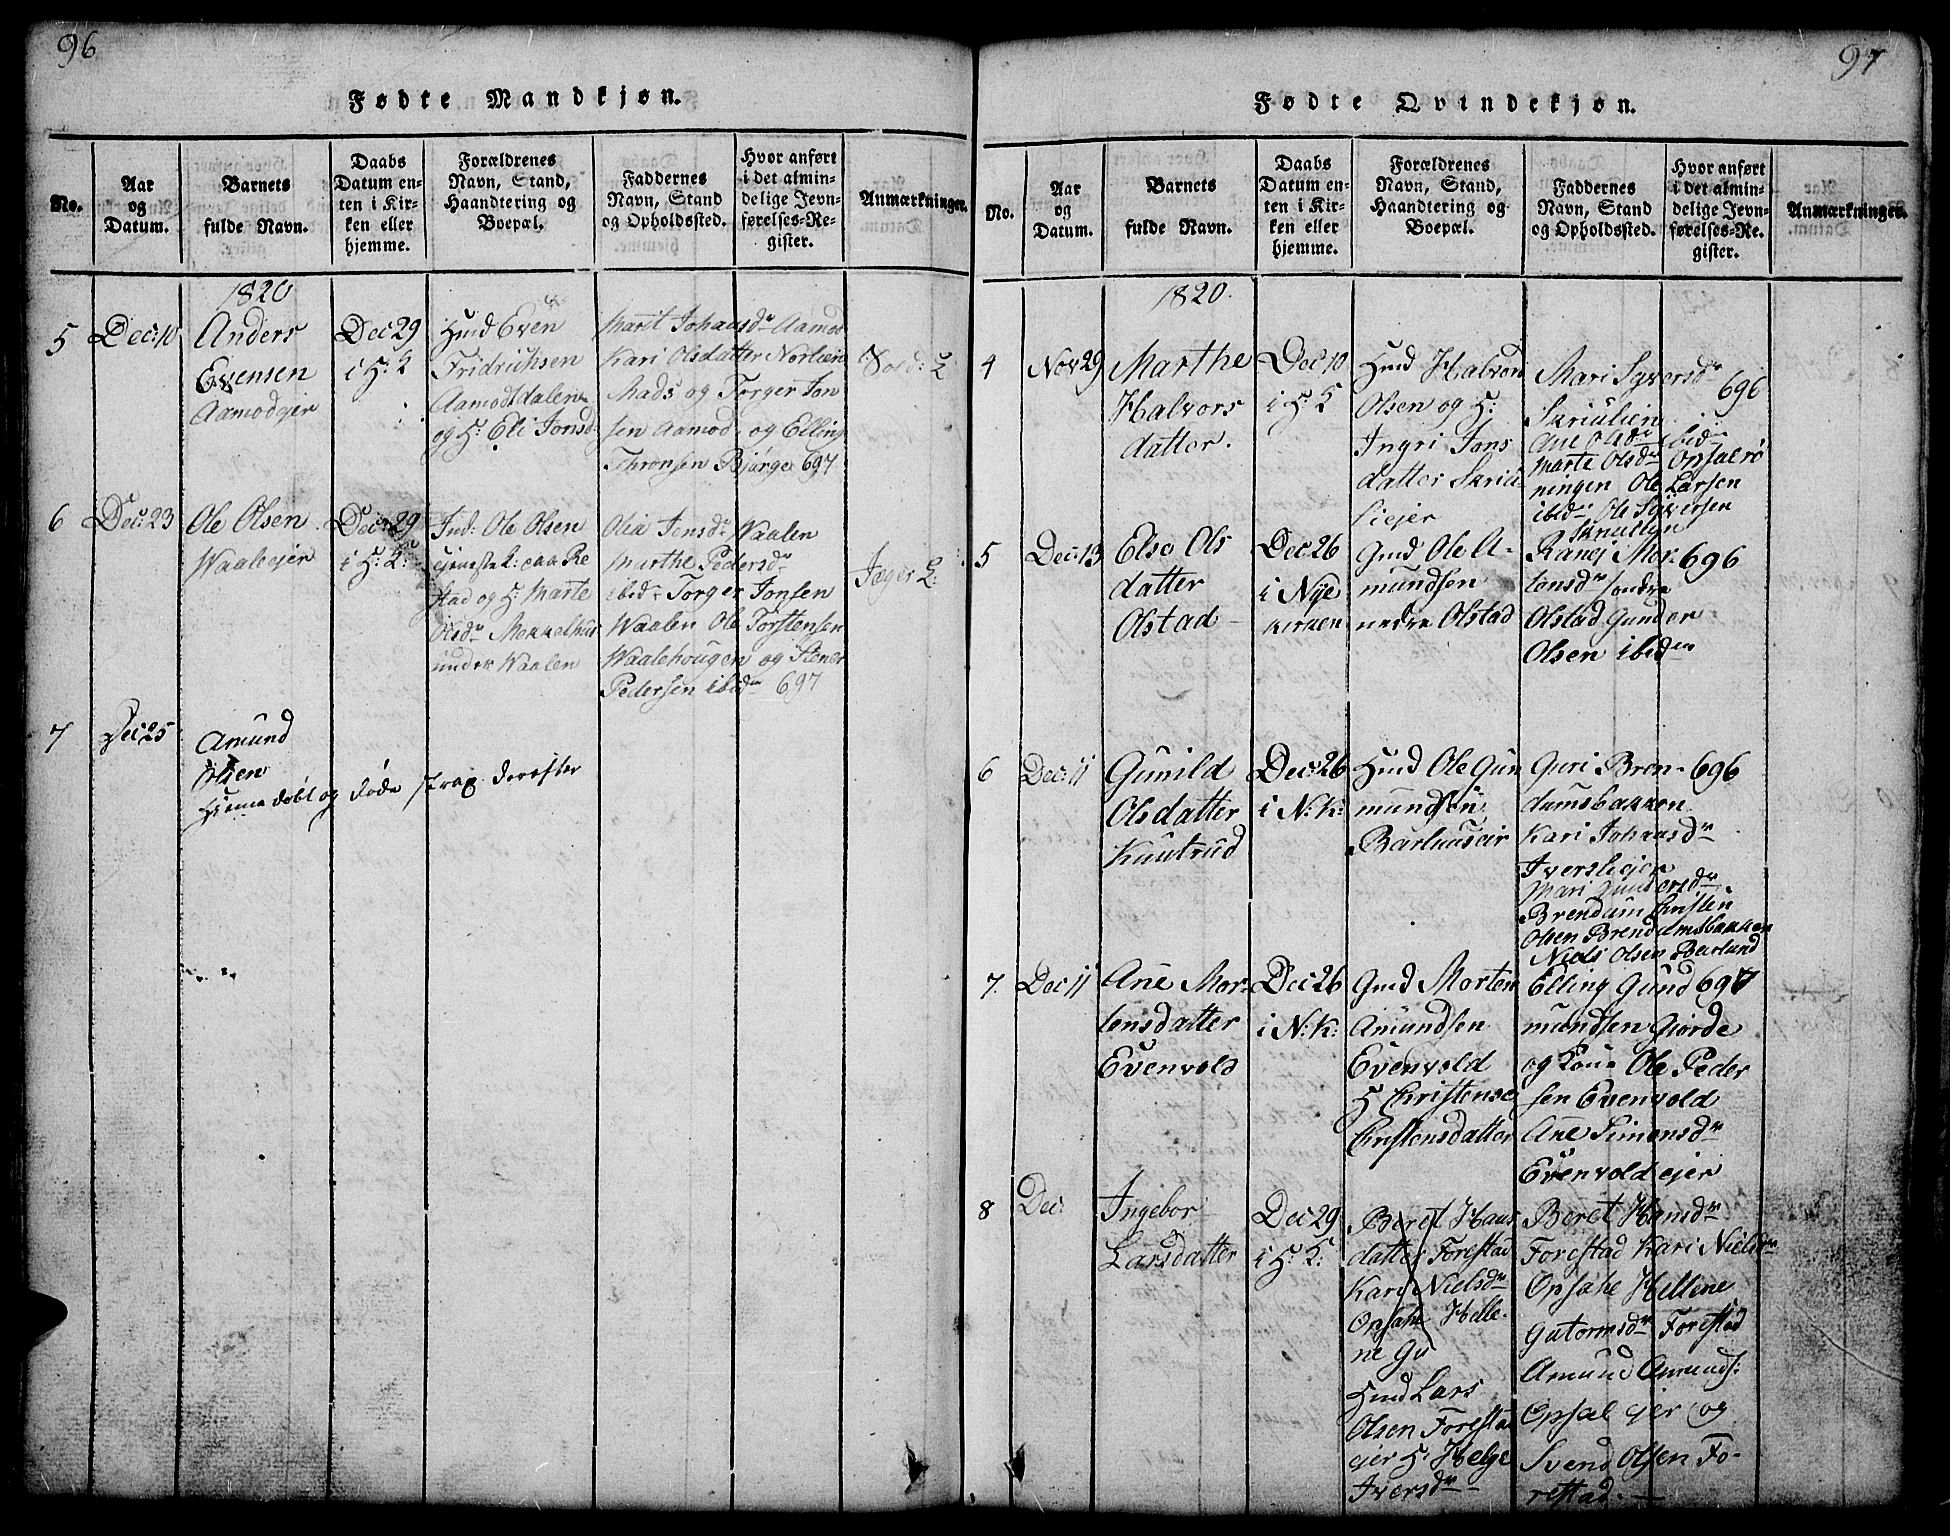 96
Fødte Mandkjøn.
No.
Aar
og
Datum.
Barnets
fulde Navn.
Daabs
Datum en-
ten i Kir-
ken eller
hjemme.
Forældrenes
Navn, Stand,
Haandtering og
Boepæl.
Faddernes
Navn, Stand
og Opholdssted.
Hvor anført
i det almin-
delige Jevn-
førelses-Re-
gister.
Anmærkninger.
1820
5
Dec: 10
Anders
Evensen
Aamodejer
Dec 29
i H: K
Hmd Even
Fridrichsen
Aamodtdalen
og H: Eli Jonsd
Marit Johansdr Aamod
Kari Olsdatter Norlien
Mads og Torger Jon
sen Aamod, og Elling
Thronsen Bjørge 697
Sold: L
6
Dec: 23
Ole Olsen
Waaleejer
Dec: 29
i H: K:
Ind: Ole Olsen
tjeneste k: paa Re
stad og H: Marte
Olsdr Mekkelhus
under Waalen
Olia Jonsdr Waalen
Marthe Pedersdr
ibidm Torger Jonsen
Waalen Ole Torstensen
Waalehougen og Stener
Pedersen ibidm 697
Jæger L:
7
Dec 25
Amund
Olsen
Hjemmedøbt og døde strax derefter
97
Fødte Qvindekjøn.
No.
Aar
og
Datum.
Barnets
fulde Navn.
Daabs
Datum en-
ten i Kir-
ken eller
hjemme.
Forældrenes
Navn, Stand,
Haandtering og
Boepæl.
Faddernes
Navn, Stand
og Opholdssted.
Hvor anført
i det almin-
delige Jevn-
førelses-Re-
gister.
Anmærkninger.
1820.
4
Nov 29
Marthe
Halvors
datter.
Dec: 10
i H: K
Hmd Halvon
Olsen og H:
Ingri Jons
datter Skriu
liejer
Mari Syversdr
Skriulien 696
Ane Olsdr ibidm
Marte Olsdr Opsalrø
ningen Ole Larsen
ibidm Ole Syversen
Skriulien
5
Dec: 13
Else Ols
datter
Olstad
Dec 26
i Nye
kirken
Gmd Ole A-
mundsen
nedre Olstad
Ranei Mor- 696
tensdr søndre
Olstad Gunder
Olsen ibidm
6
Dec: 11
Gunild
Olsdatter
Knutrud
Dec: 26
i N: K:
Hmd Ole Gun
mundsen
Barlunseir
Guri Bren- 696
dumsbakken
Kari Johansdr
Iversliejer
Mari Gundersdr
Brendum Cristen
Olsen Brendumsbakken
Niels Olsen Barlund
7.
Dec 11
Ane Mor-
tensdatter
Evenvold
Dec 26
i N: K:
Gmd Morten
Amundsen
Evenvold
H Cristense
Cristensdatter
Elling Gund 697
mundsen Gjorde
og Kone Ole Peder
sen Evenvold
Ane Simensdr
Evenvoldejer
8
Dec:
Ingebor
Larsdatter
Dec: 29
i H: K:
Beret Hans
datter Forestad
Kari Nielsdr
Opsahe Helle-
ne Gu
Hmd Lars
Olsen Forestad
ejer H: Helge
Iversdr
Beret Hansdr
Forestad Kari Nielsdr
Opsahe Hellene
Gutormsdr Forestad
Amund Amunds:
Opsal ejer og
Svend Olsen Fo-
restad.